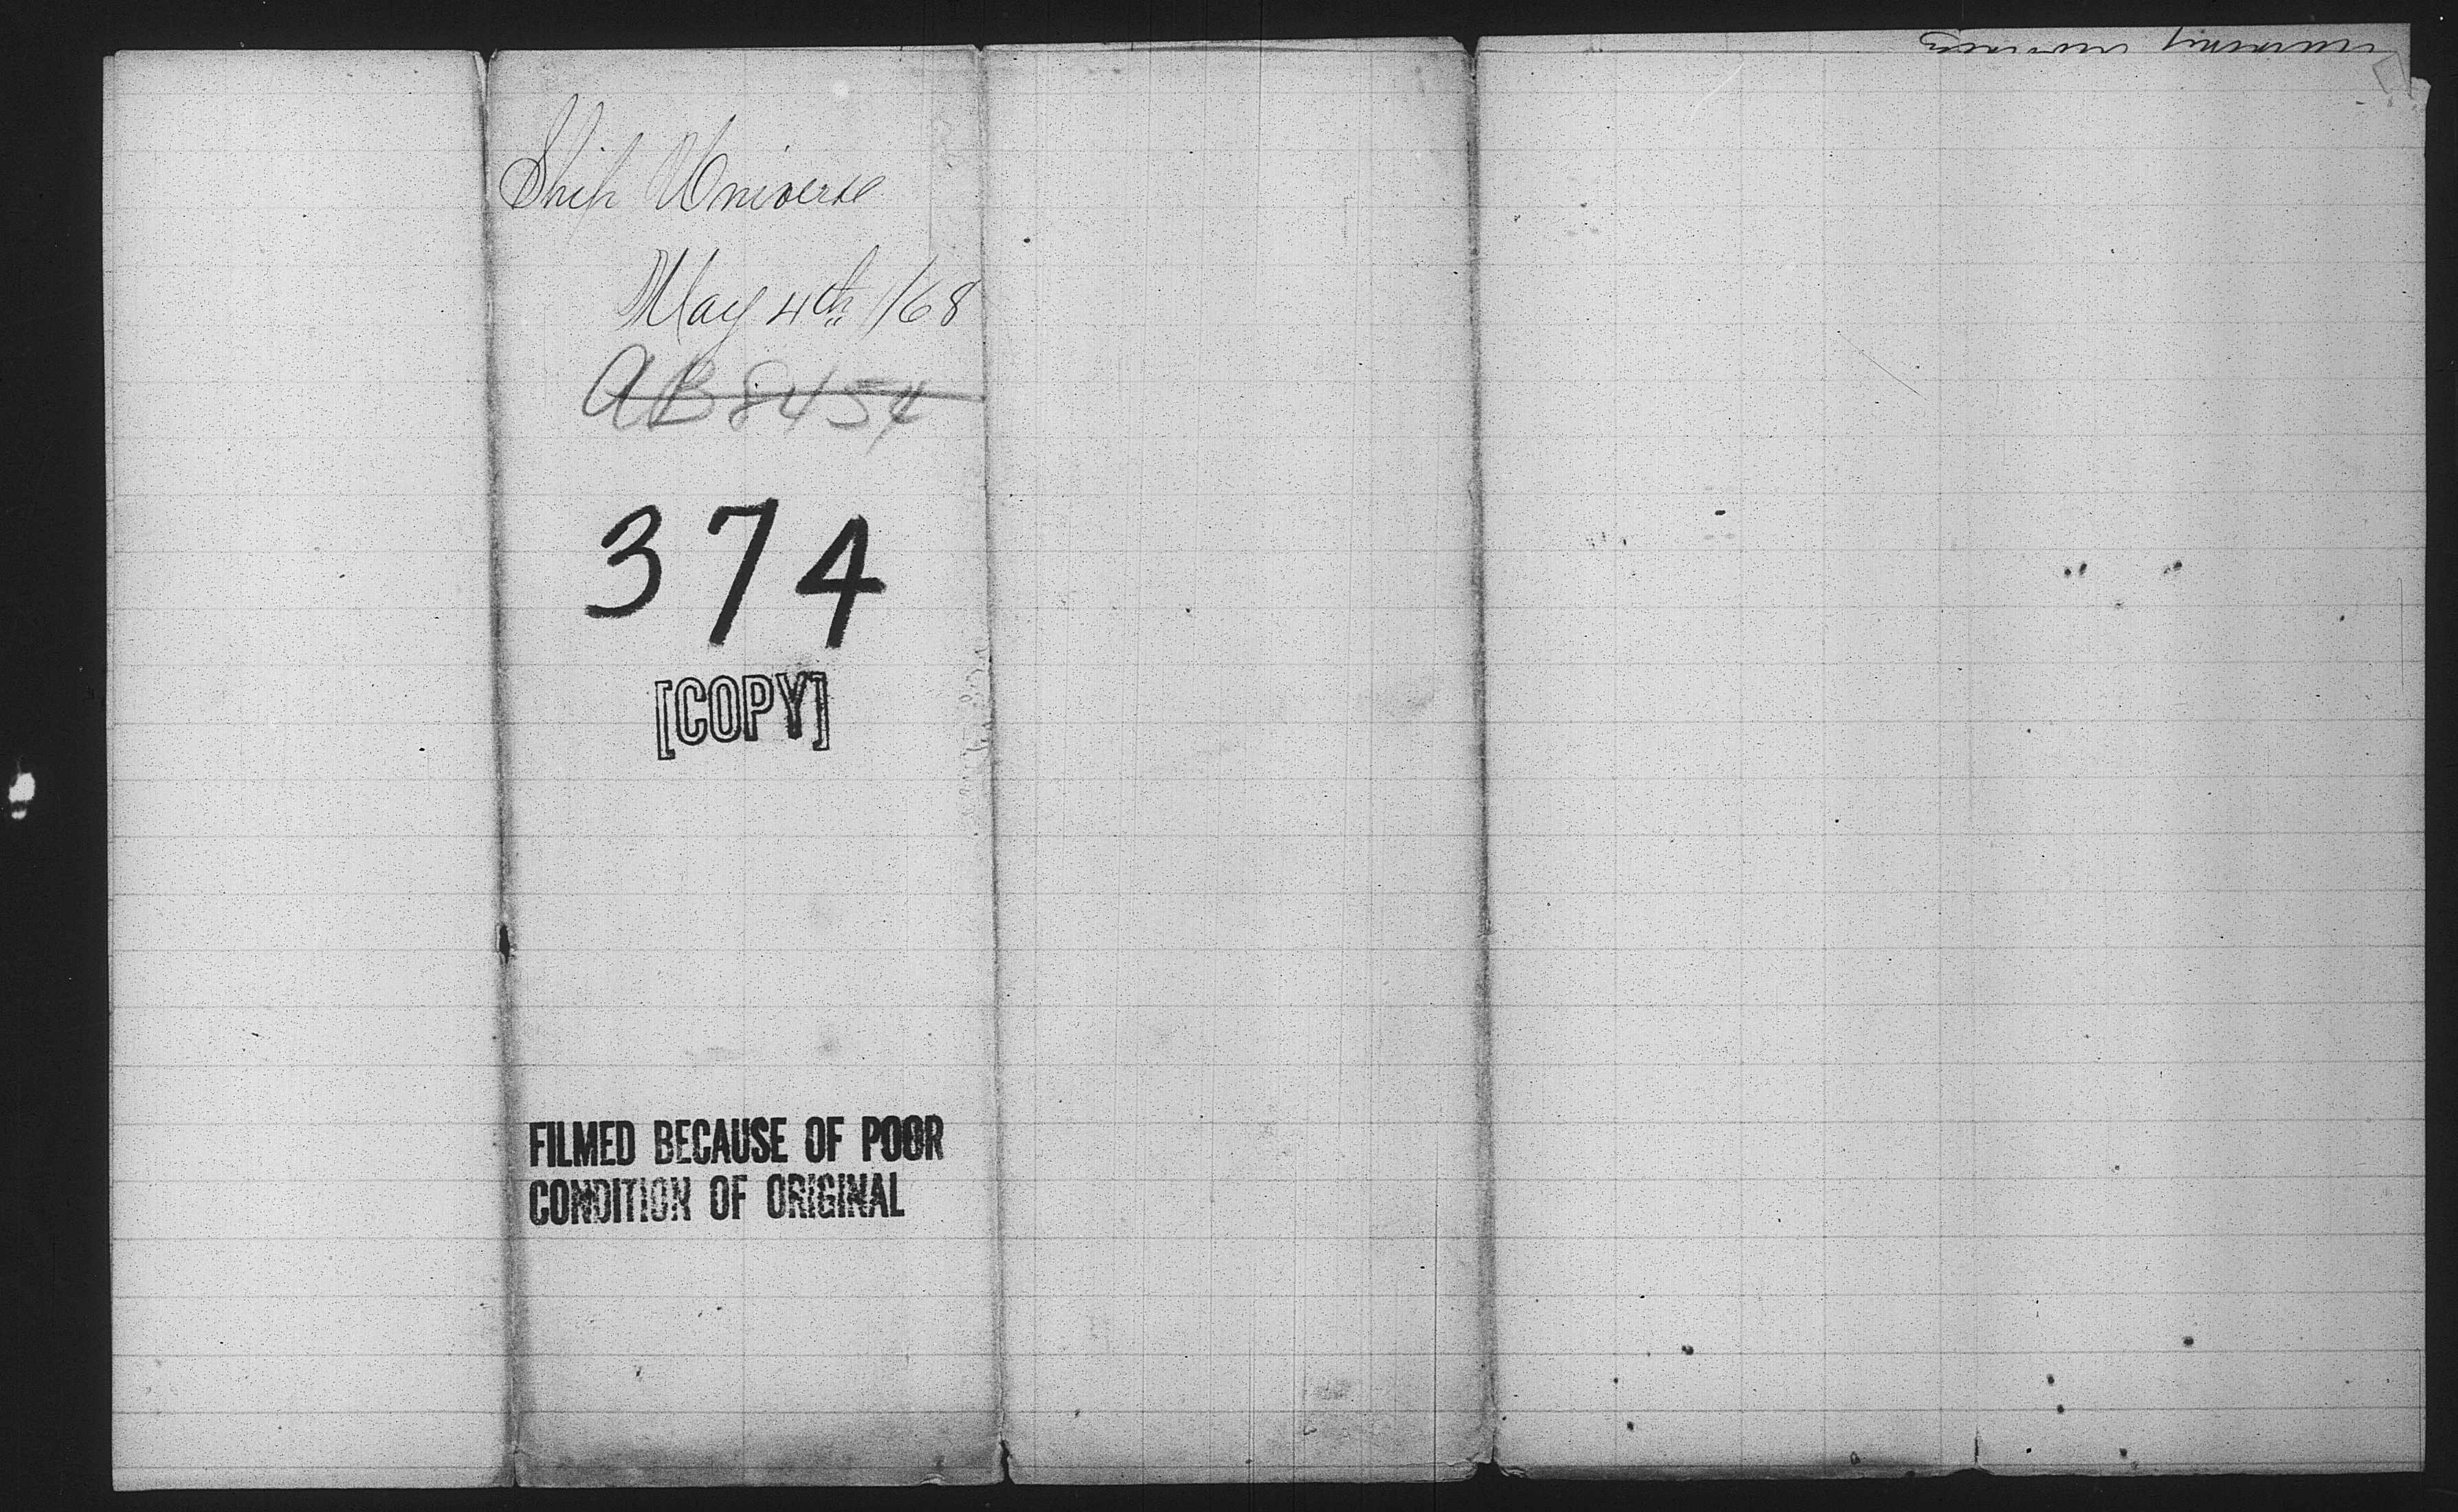 Ship Universe
May 4th /68
AB8454
374
[COPY]
FILMED BECAUSE OF POOR
CONDITION OF ORIGINAL